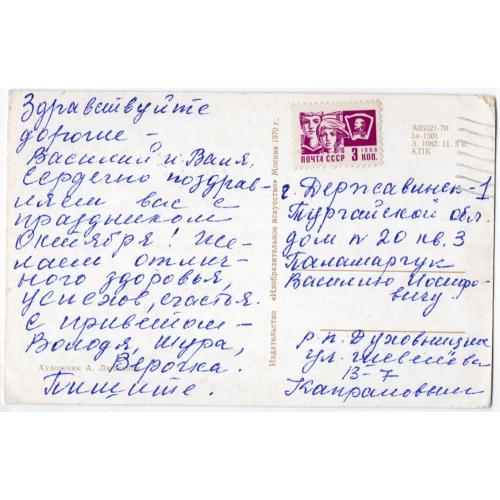 Здравствуйте
дорогие –
Василий и Валя.
Сердечно поздрав-
ляем вас с
праздником
Октября! Же-
лаем отлич-
ного здоровья,
успехов, счастья.
С приветом –
Володя, Шура,
Верочка.
Пишите.
Художник А.
Издательство «Изобразительное искусство» Москва 1970 г.
1966
ПОЧТА СССР 3 КОП.
А05521-70
За-1501
З. 1082. Ц. 3 к.
КПК
г. Державинск-1
Тургайской обл.
дом N 20 кв. 3
Паламарчук
Василию Иосифо-
вичу
р. п. Духовницкое
ул.
13-7